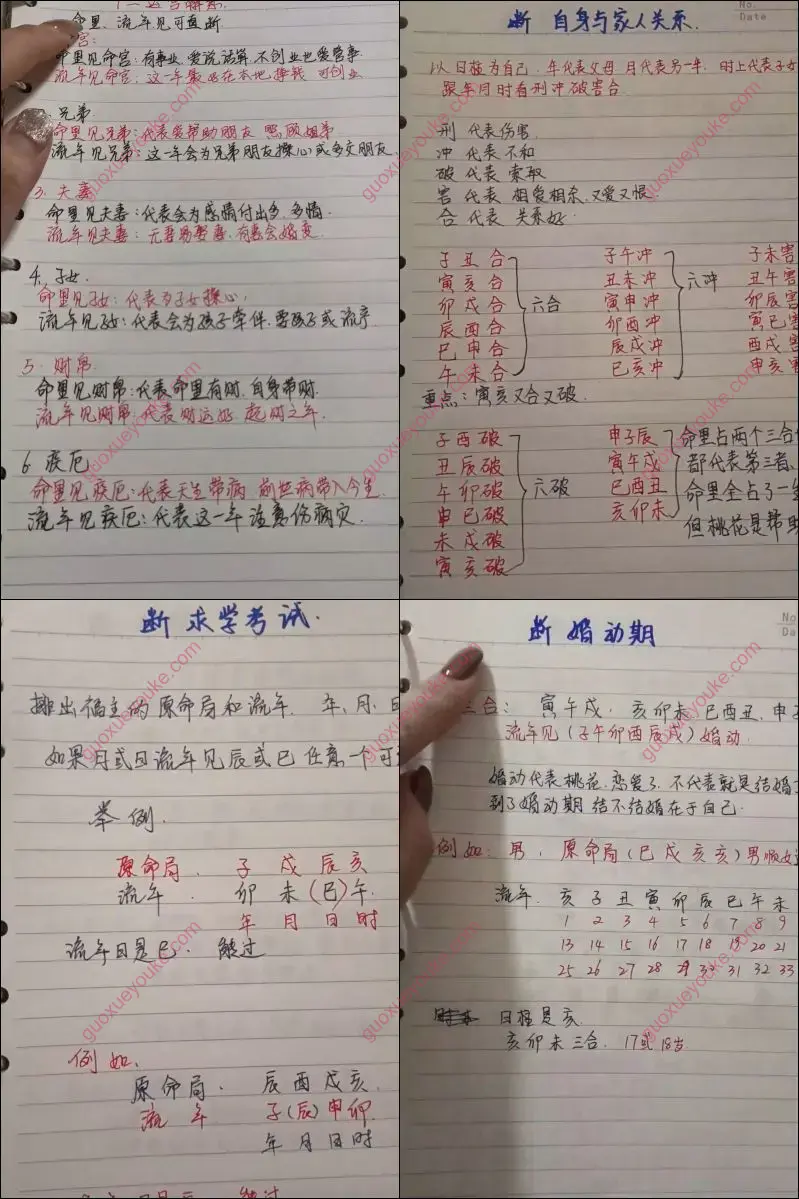 命里、流年见可直断
命里见命宫:有事业,爱说话算,不创业也爱管事
流年见命宫,这一年最好在本地挣钱 可创业
兄弟
命里见兄弟:代表爱帮助朋友 照顾姐弟
流年见兄弟:这一年会为兄弟朋友操心或多交朋友
3. 夫妻
命里见夫妻:代表会为感情付出多,多情.
流年见夫妻:无妻易娶妻,有妻会婚变.
4. 子女.
命里见子女:代表为子女操心,
流年见子女:代表会为孩子牵伴,要孩子或流产
5. 财帛
命里见财帛:代表命里有财,自身带财.
流年见财帛:代表财运好 起财之年.
6 疾厄
命里见疾厄:代表天生带病 前世病带入今生.
流年见疾厄:代表这一年注意伤病灾.
断 自身与家人关系.
No.
Date
以日柱为自己,年代表父母 月代表另一半,时上代表子女
跟年月时看刑冲破害合
刑 代表伤害.
冲 代表不和
破 代表 索取
害 代表 相爱相杀,又爱又恨.
合 代表 关系好.
子丑合 子午冲 子未害
寅亥合 丑未冲 丑午害
卯戌合 六合 寅申冲 六冲 卯辰害
辰酉合 卯酉冲 寅巳害
巳申合 辰戌冲 酉戌害
午未合 巳亥冲 申亥害
重点:寅亥又合又破.
子酉破 申子辰 命里占两个三合
丑辰破 寅午戌 都代表第三者、
午卯破 六破 巳酉丑 命里全占了一
申巳破 亥卯未 但桃花是帮助
未戌破
寅亥破
断 求学考试.
排出福主的原命局和流年. 年、月、日
如果月或日流年见辰或巳任意一个可
举例.
原命局. 子 戌 辰 亥
流年. 卯 未(巳)午.
年 月 日 时
流年日是巳. 能过
例如.
原命局. 辰 酉 戌 亥.
流年 子(辰)申卯
年 月 日 时
断 婚动期
No.
Da
三合: 寅午戌. 亥卯未 巳酉丑,申子
流年见(子午卯酉辰戌)婚动.
婚动代表桃花.恋爱了.不代表就是结婚
到了婚动期 结不结婚在于自己.
例如:男, 原命局(巳戌亥亥)男顺女
流年. 亥 子 丑 寅 卯 辰 巳 午 未
1 2 3 4 5 6 7 8 9
13 14 15 16 17 18 19 20 21
25 26 27 28 29 30 31 32 33
日柱是亥.
亥卯未三合. 17或18岁.
guoxueyouke.com